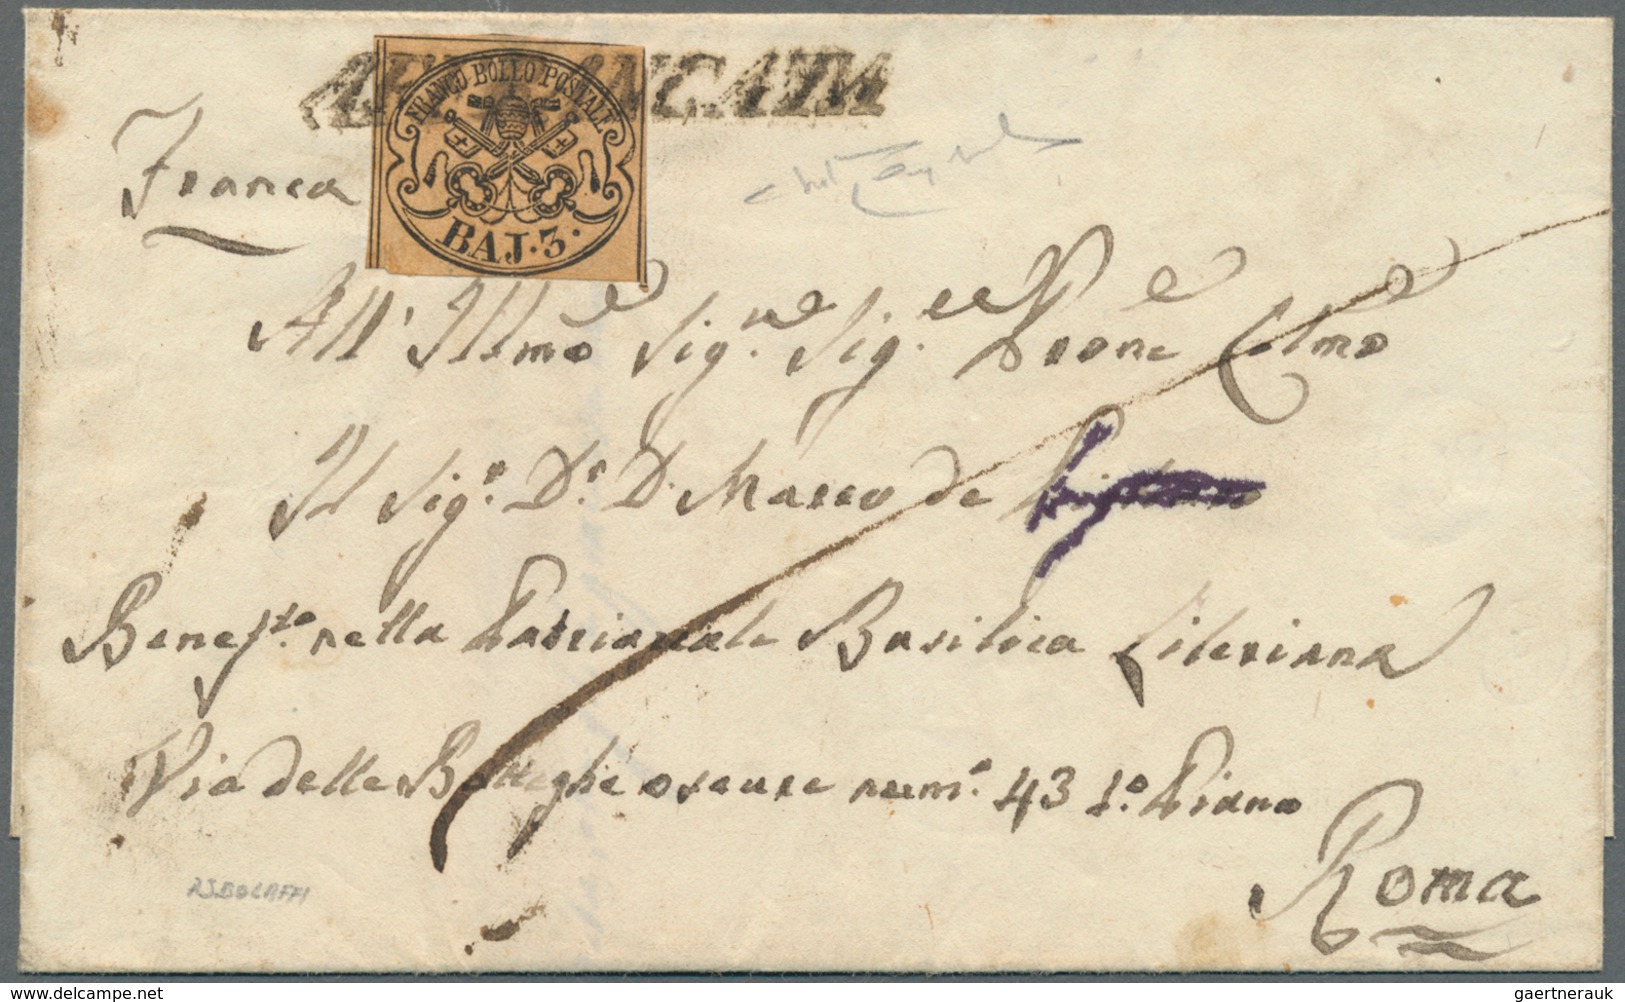 FRANCO BOLLO POSTALE
BAJ. 3.
Franca
All' Illmo Sig.re Sig.re Prone Colmo
Il Sig.r D.r D. Marco de
Benef.to nella Patriarcale Basilica Liberiana
Via delle Botteghe oscure num.o 43 1.o Piano
Roma
www.delcampe.net
gaertnerauk